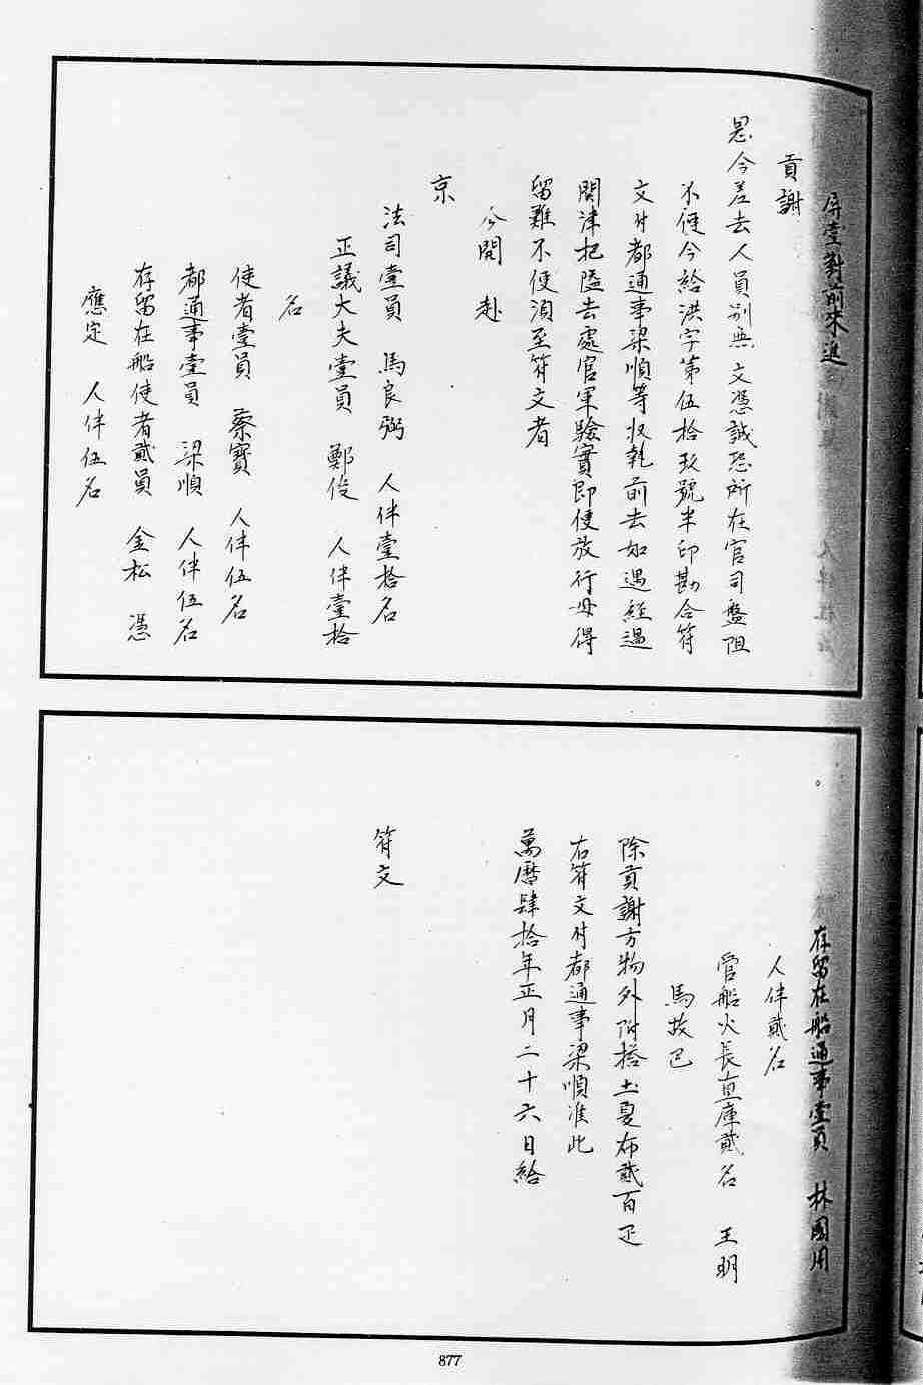 屏壹對前來進
貢謝
恩今差去人員別無文憑誠恐所在官司盤阻
不便今給洪字第伍拾玖號半印勘合符
文付都通事梁順等收執前去如遇經過
關津把隘去處官軍驗實即便放行毋得
留難不便須至符文者
今開赴
京
法司壹員 馬良弼 人伴壹拾名
正議大夫壹員 鄭俊 人伴壹拾
名
使者壹員 蔡寶 人伴伍名
都通事壹員 梁順 人伴伍名
存留在船使者貳員 金松 憑
應定 人伴伍名
存留在船通事壹員 林國用
人伴貳名
管船火長直庫貳名 王明
馬故巴
除貢謝方物外附搭土夏布貳百疋
右符文付都通事梁順准此
萬曆肆拾年正月二十六日給
符文
877